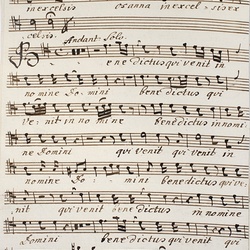 in excelsis osanna in excel - sis ex
celsis. Andant. Solo.
Benedictus qui venit in
nomine Domini benedictus qui
venit in nomine benedictus in nomi,
ne Domini qui venit qui venit in
nomine Domini benedictus qui ve,
nit qui venit benedictus in nomine
Domini benedictus qui venit in